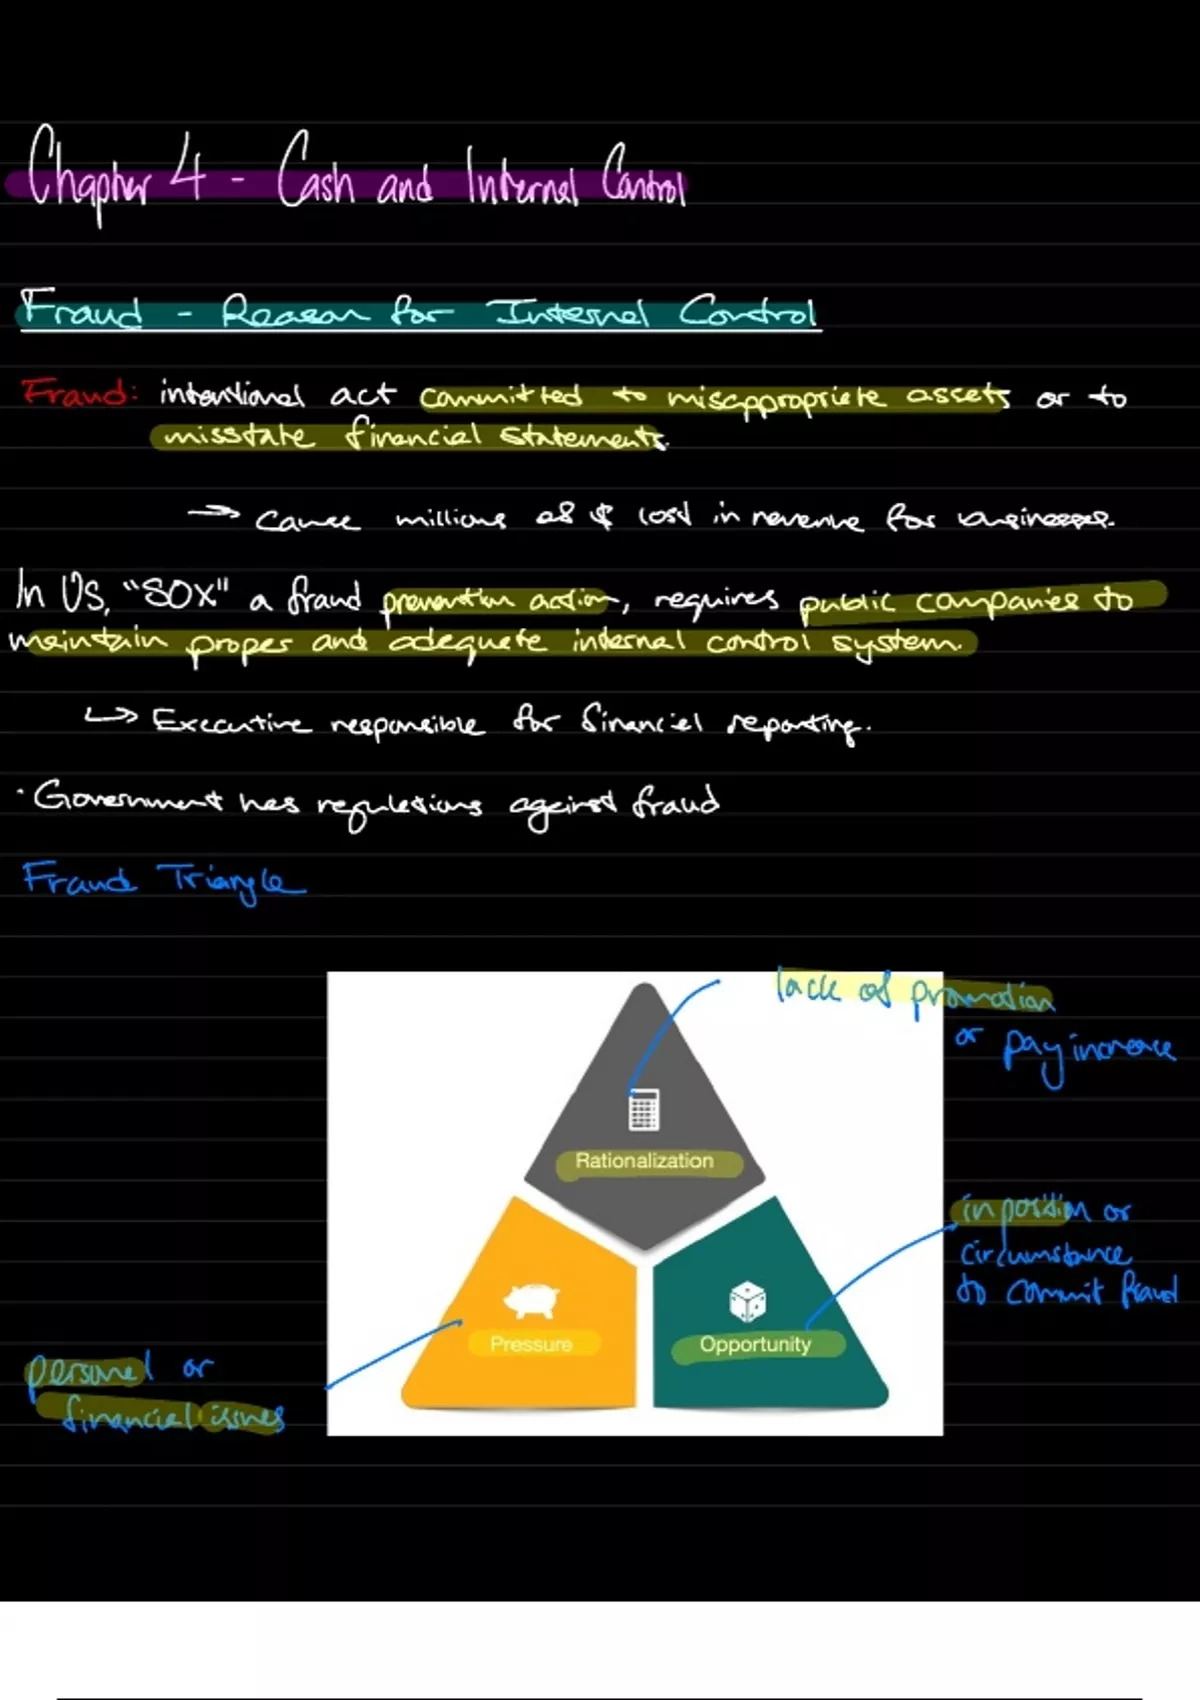 Chapter 4 - Cash and Internal Control
Fraud - Reason for Internal Control
Fraud: intentional act committed to misappropriate assets or to
misstate financial statements.
→ Cause millions of $ lost in revenue for businesses.
In US, "SOX" a fraud prevention action, requires public companies to
maintain proper and adequate internal control system.
↳ Executive responsible for financial reporting.
· Government has regulations against fraud
Fraud Triangle
lack of promotion
or pay increase
Rationalization
in position or
circumstance
to commit fraud
Pressure
Opportunity
personal or
financial issues